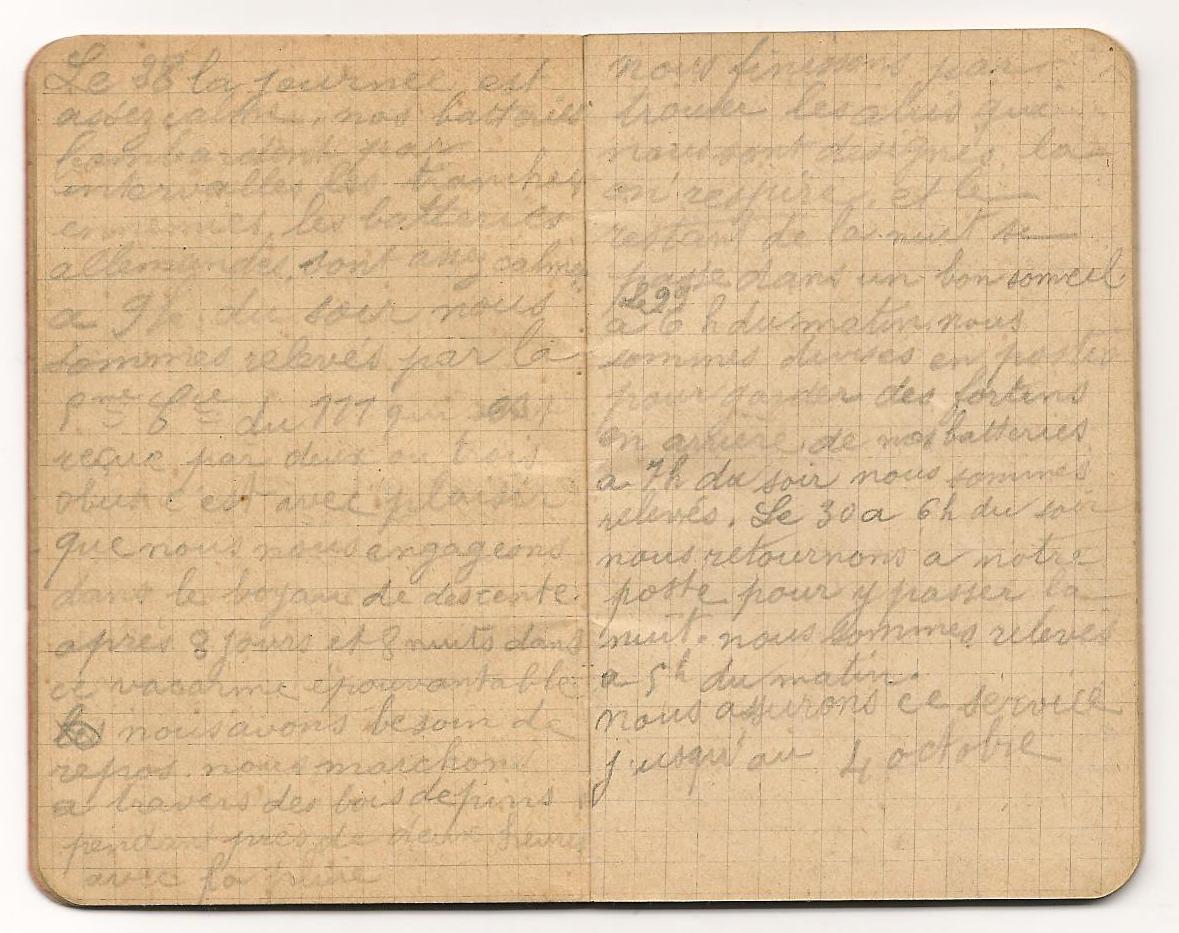 Le 28 la journée est
assez calme, nos batteries
bombardent par
intervalles les tranchés
ennemies, les batteries
allemandes, sont assez calmes
a 9h du soir nous
sommes relevés par la
5me Cie du 111 qui est
reçue par deux ou trois
obus c'est avec plaisir
que nous nous engageons
dans le boyau de descente.
après 8 jours et 8 nuits dans
ce vacarme épouvantable
nous avons besoin de
repos. nous marchons
a travers des bois de pins
pendant près de deux heures
avec la pluie
nous finissons par
trouver les abris qui
nous sont designés la
on respire, et le
restant de la nuit se
passe dans un bon someil
Le 29
a 6 h du matin nous
sommes divisés en postes
pour garder des fortins
en arriere de nos batteries
a 7h du soir nous sommes
relevés. Le 30 a 6h du soir
nous retournons a notre
poste pour y passer la
nuit. nous sommes relevés
a 5h du matin.
nous assurons ce service
jusqu'au 4 octobre